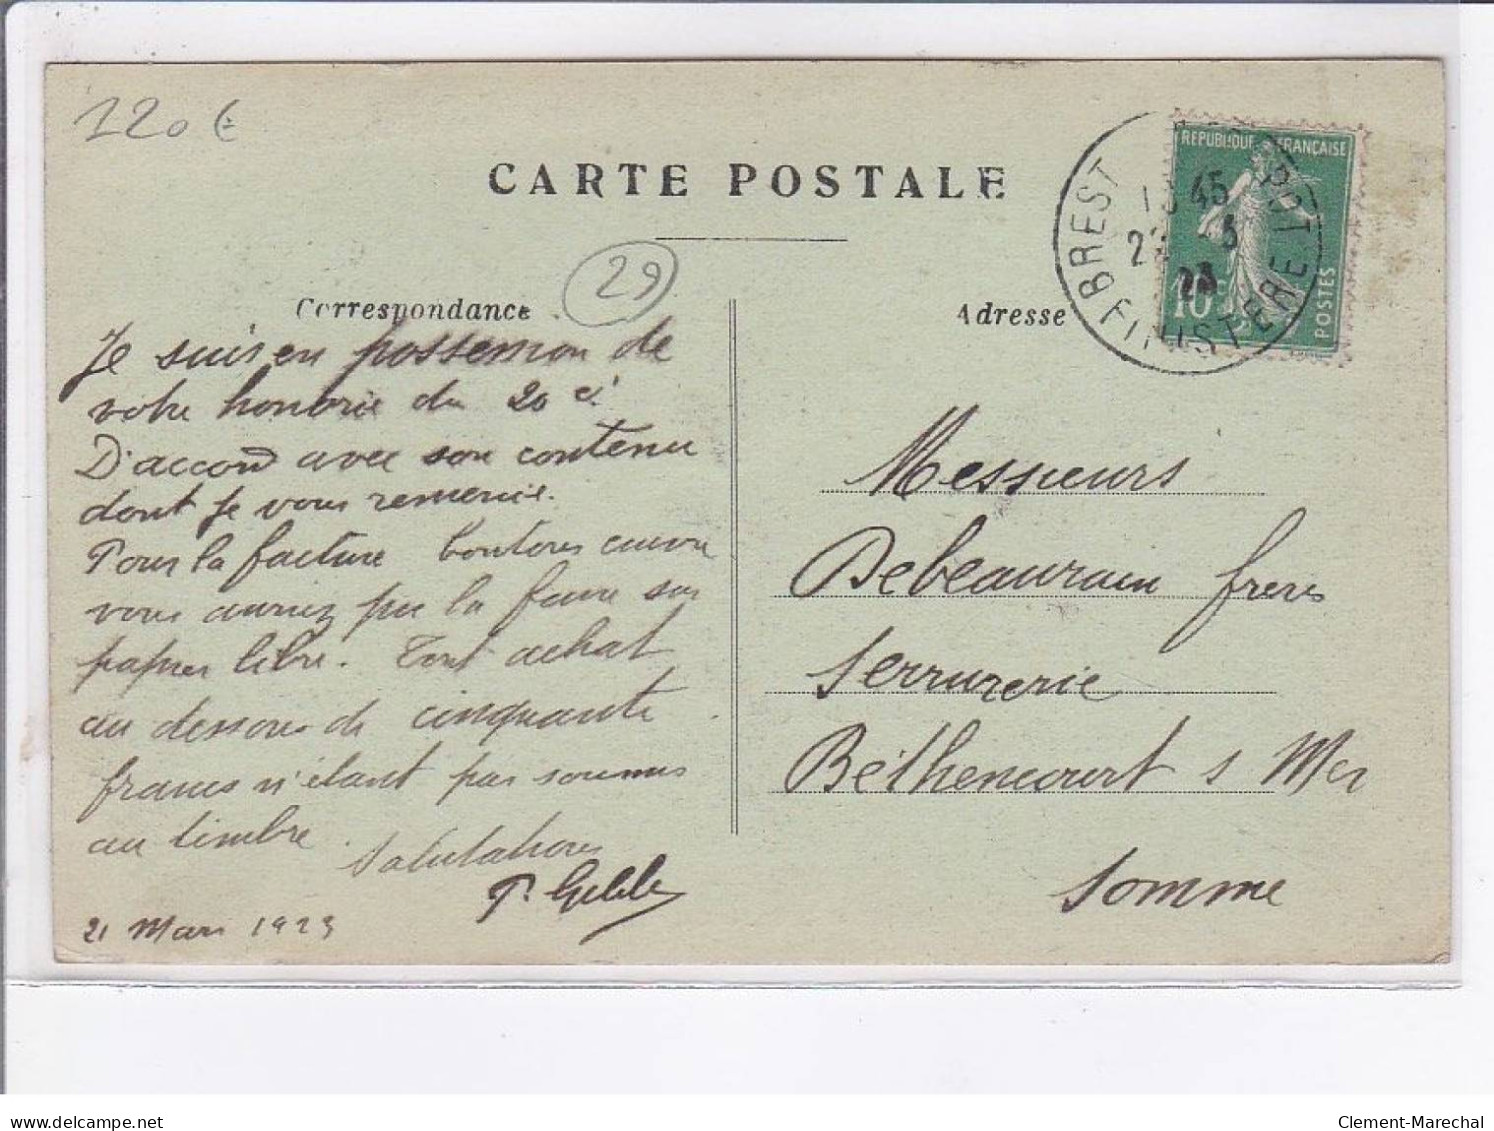 120 €
CARTE POSTALE
29
Correspondance
Adresse
REPUBLIQUE FRANÇAISE
10c
POSTES
BREST DÉPOT
FINISTERE
45
23
Je suis en possession de
votre honorée du 20 ct
D'accord avec son contenu
dont Je vous remercie.
Pour la facture boutons cuivre
vous auriez pu la faire sur
papier libre. Tout achat
au dessous de cinquante
francs n'étant pas soumis
au timbre.
Salutations
21 Mars 1923
Messieurs
Debeaurain freres
Serrurerie
Béthencourt s Mer
Somme
delcampe.net
Clement-Marechal